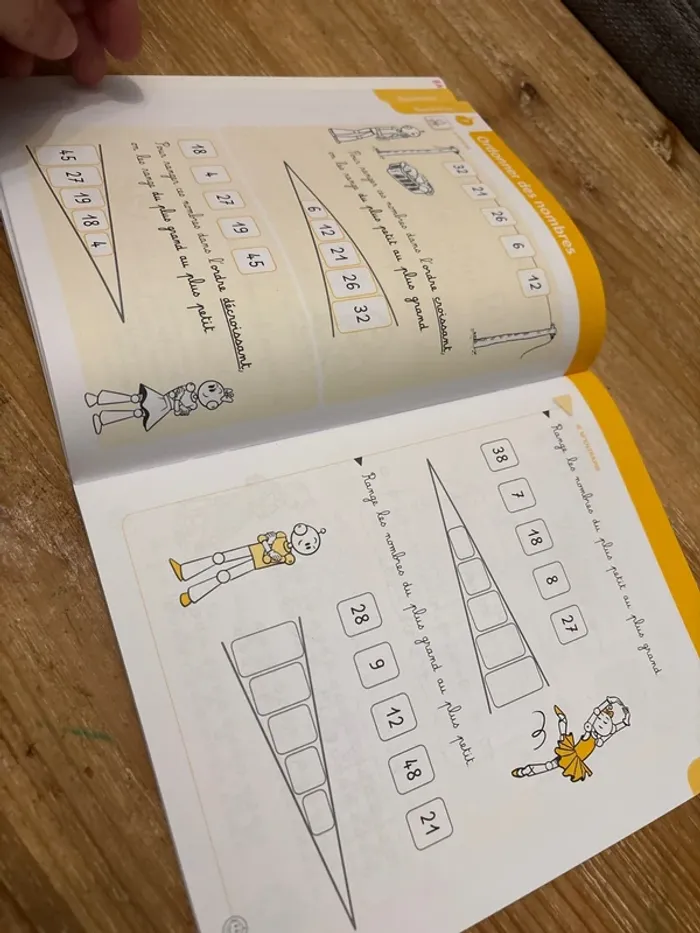 Ordonner des nombres
32 21 26 6 12
Pour ranger ces nombres dans l'ordre croissant,
on les range du plus petit au plus grand
6 12 21 26 32
18 4 27 19 45
Pour ranger ces nombres dans l'ordre décroissant,
on les range du plus grand au plus petit
45 27 19 18 4
JE M'ENTRAÎNE
Range les nombres du plus petit au plus grand
38 7 18 8 27
Range les nombres du plus grand au plus petit.
28 9 12 48 21